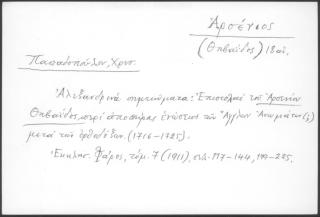 Ἀρσένιος
(Θηβαΐδος) 18 αἰ.
Παπαδοπούλου, Χρυσ.
Ἀλεξανδρινὰ σημειώματα: Ἐπιστολαὶ τοῦ Ἀρσενίου
Θηβαΐδος, περὶ ἀποπείρας ἑνώσεως τῶν Ἄγγλων Ἀνωμότων (;)
μετὰ τῶν ὀρθοδόξων. (1716-1725).
Ἐκκλησ. Φάρος, τόμ. 7 (1911), σελ. 117-144, 199-225.